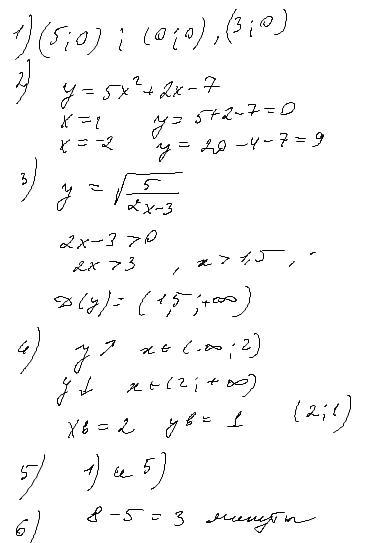 1) (5;0) ; (0;0), (3;0)
2)
y = 5x² + 2x - 7
x = 1 y = 5+2-7 = 0
x = -2 y = 20-4-7 = 9
3) y = √(5/(2x-3))
2x-3 > 0
2x > 3 , x > 1,5 ,
D(y) = (1,5; +∞)
4) y ↗ x ∈ (-∞; 2)
y ↓ x ∈ (2; +∞)
xв = 2 yв = 1 (2;1)
5) 1) и 5)
6) 8 - 5 = 3 минуты